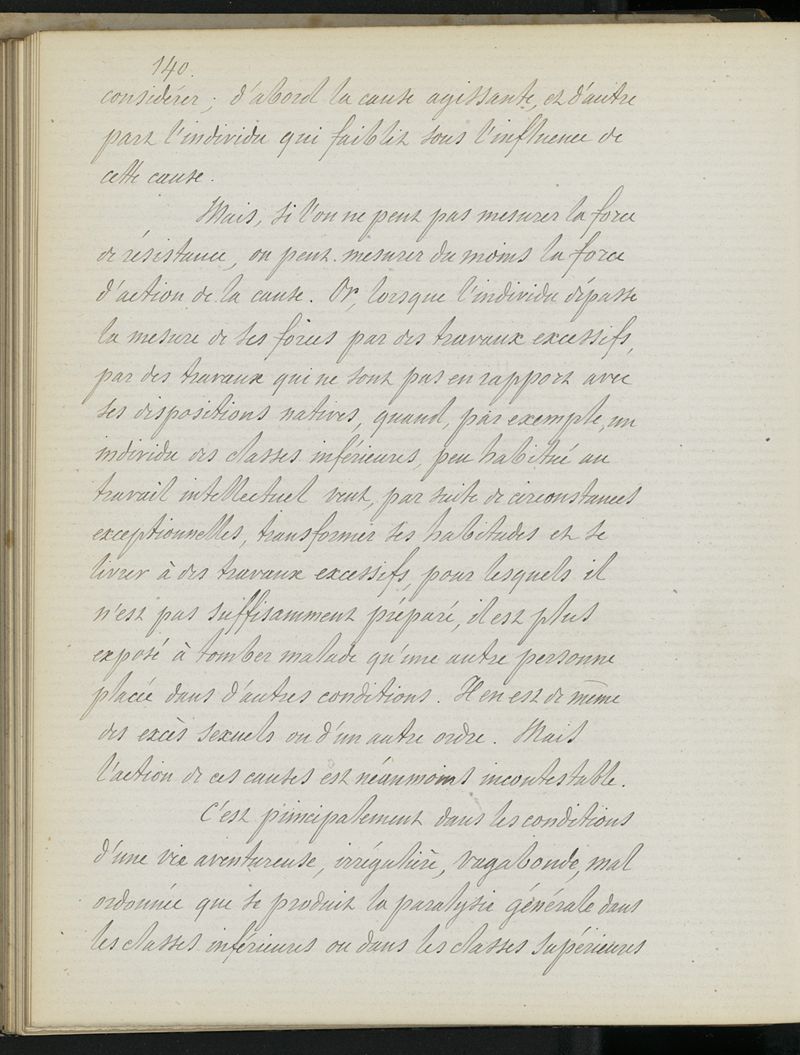 140.
considérer ; d'abord la cause agissante, et d'autre
part l'individu qui faiblit sous l'influence de
cette cause.
Mais, si l'on ne peut pas mesurer la force
de résistance, on peut mesurer du moins la force
d'action de la cause. Or, lorsque l'individu dépasse
la mesure de ses forces par des travaux excessifs,
par des travaux qui ne sont pas en rapport avec
ses dispositions natives, quand, par exemple, un
individu des classes inférieures, peu habitué au
travail intellectuel veut, par suite de circonstances
exceptionnelles, transformer ses habitudes et se
livrer à des travaux excessifs, pour lesquels il
n'est pas suffisamment préparé, il est plus
exposé à tomber malade qu'une autre personne
placée dans d'autres conditions. Il en est de même
des excès sexuels ou d'un autre ordre. Mais
l'action de ces causes est néanmoins incontestable.
C'est principalement dans les conditions
d'une vie aventureuse, irrégulière, vagabonde, mal
ordonnée que se produit la paralysie générale dans
les classes inférieures ou dans les classes supérieures